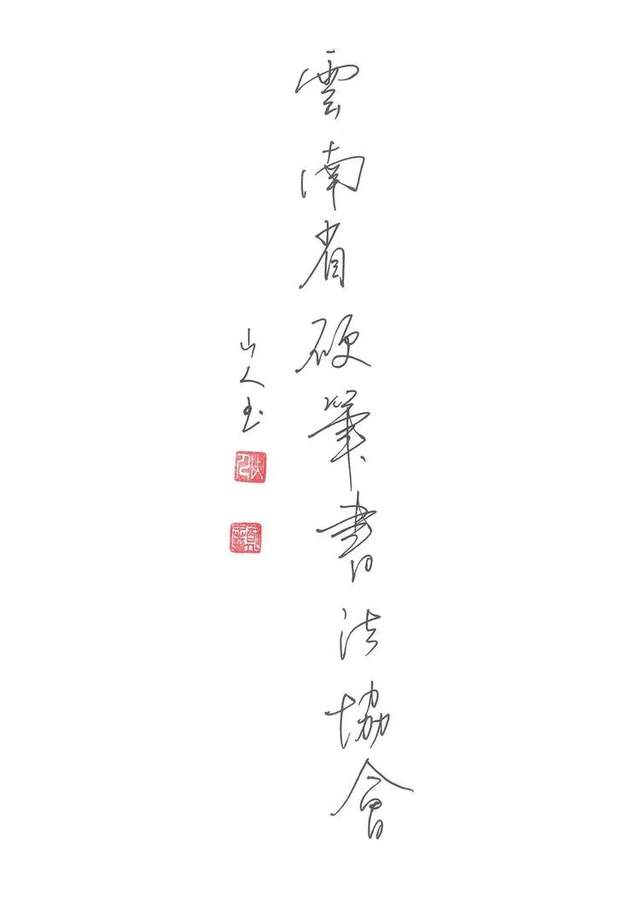 雲南省硬筆書法協會
山人书